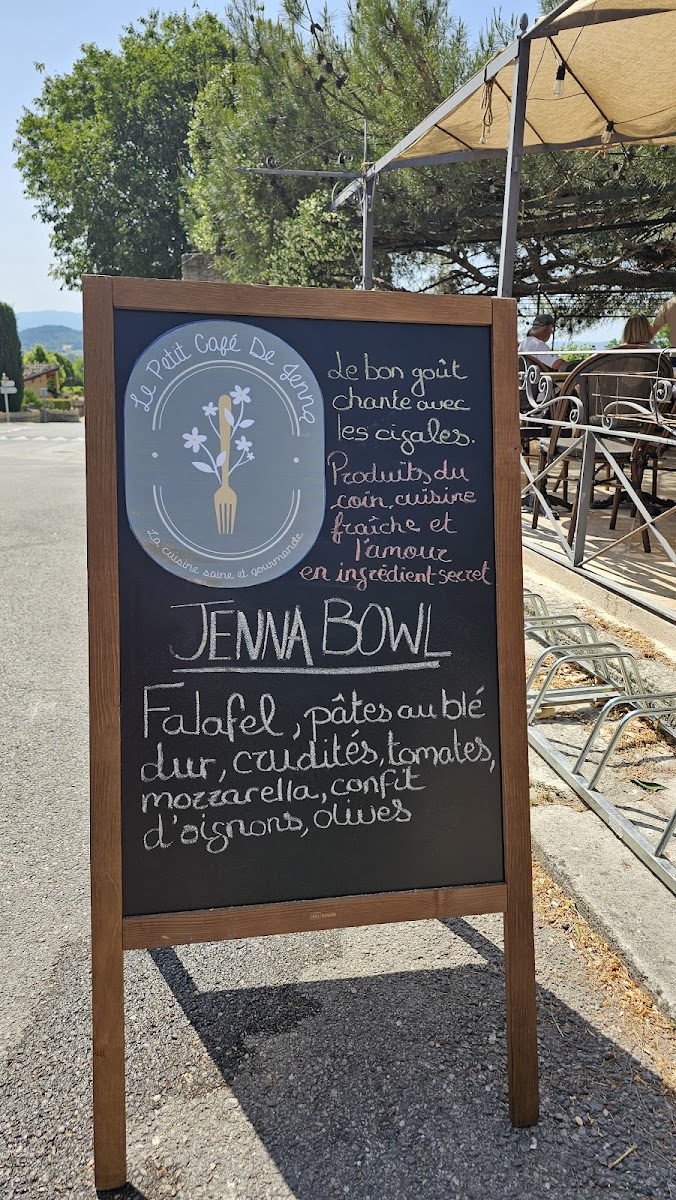 Le Petit Café De Jenna
La cuisine saine et gourmande
Le bon goût
chante avec
les cigales.
Produits du
coin, cuisine
fraîche et
l'amour
en ingrédient secret
JENNA BOWL
Falafel, pâtes au blé
dur, crudités, tomates,
mozzarella, confit
d'oignons, olives